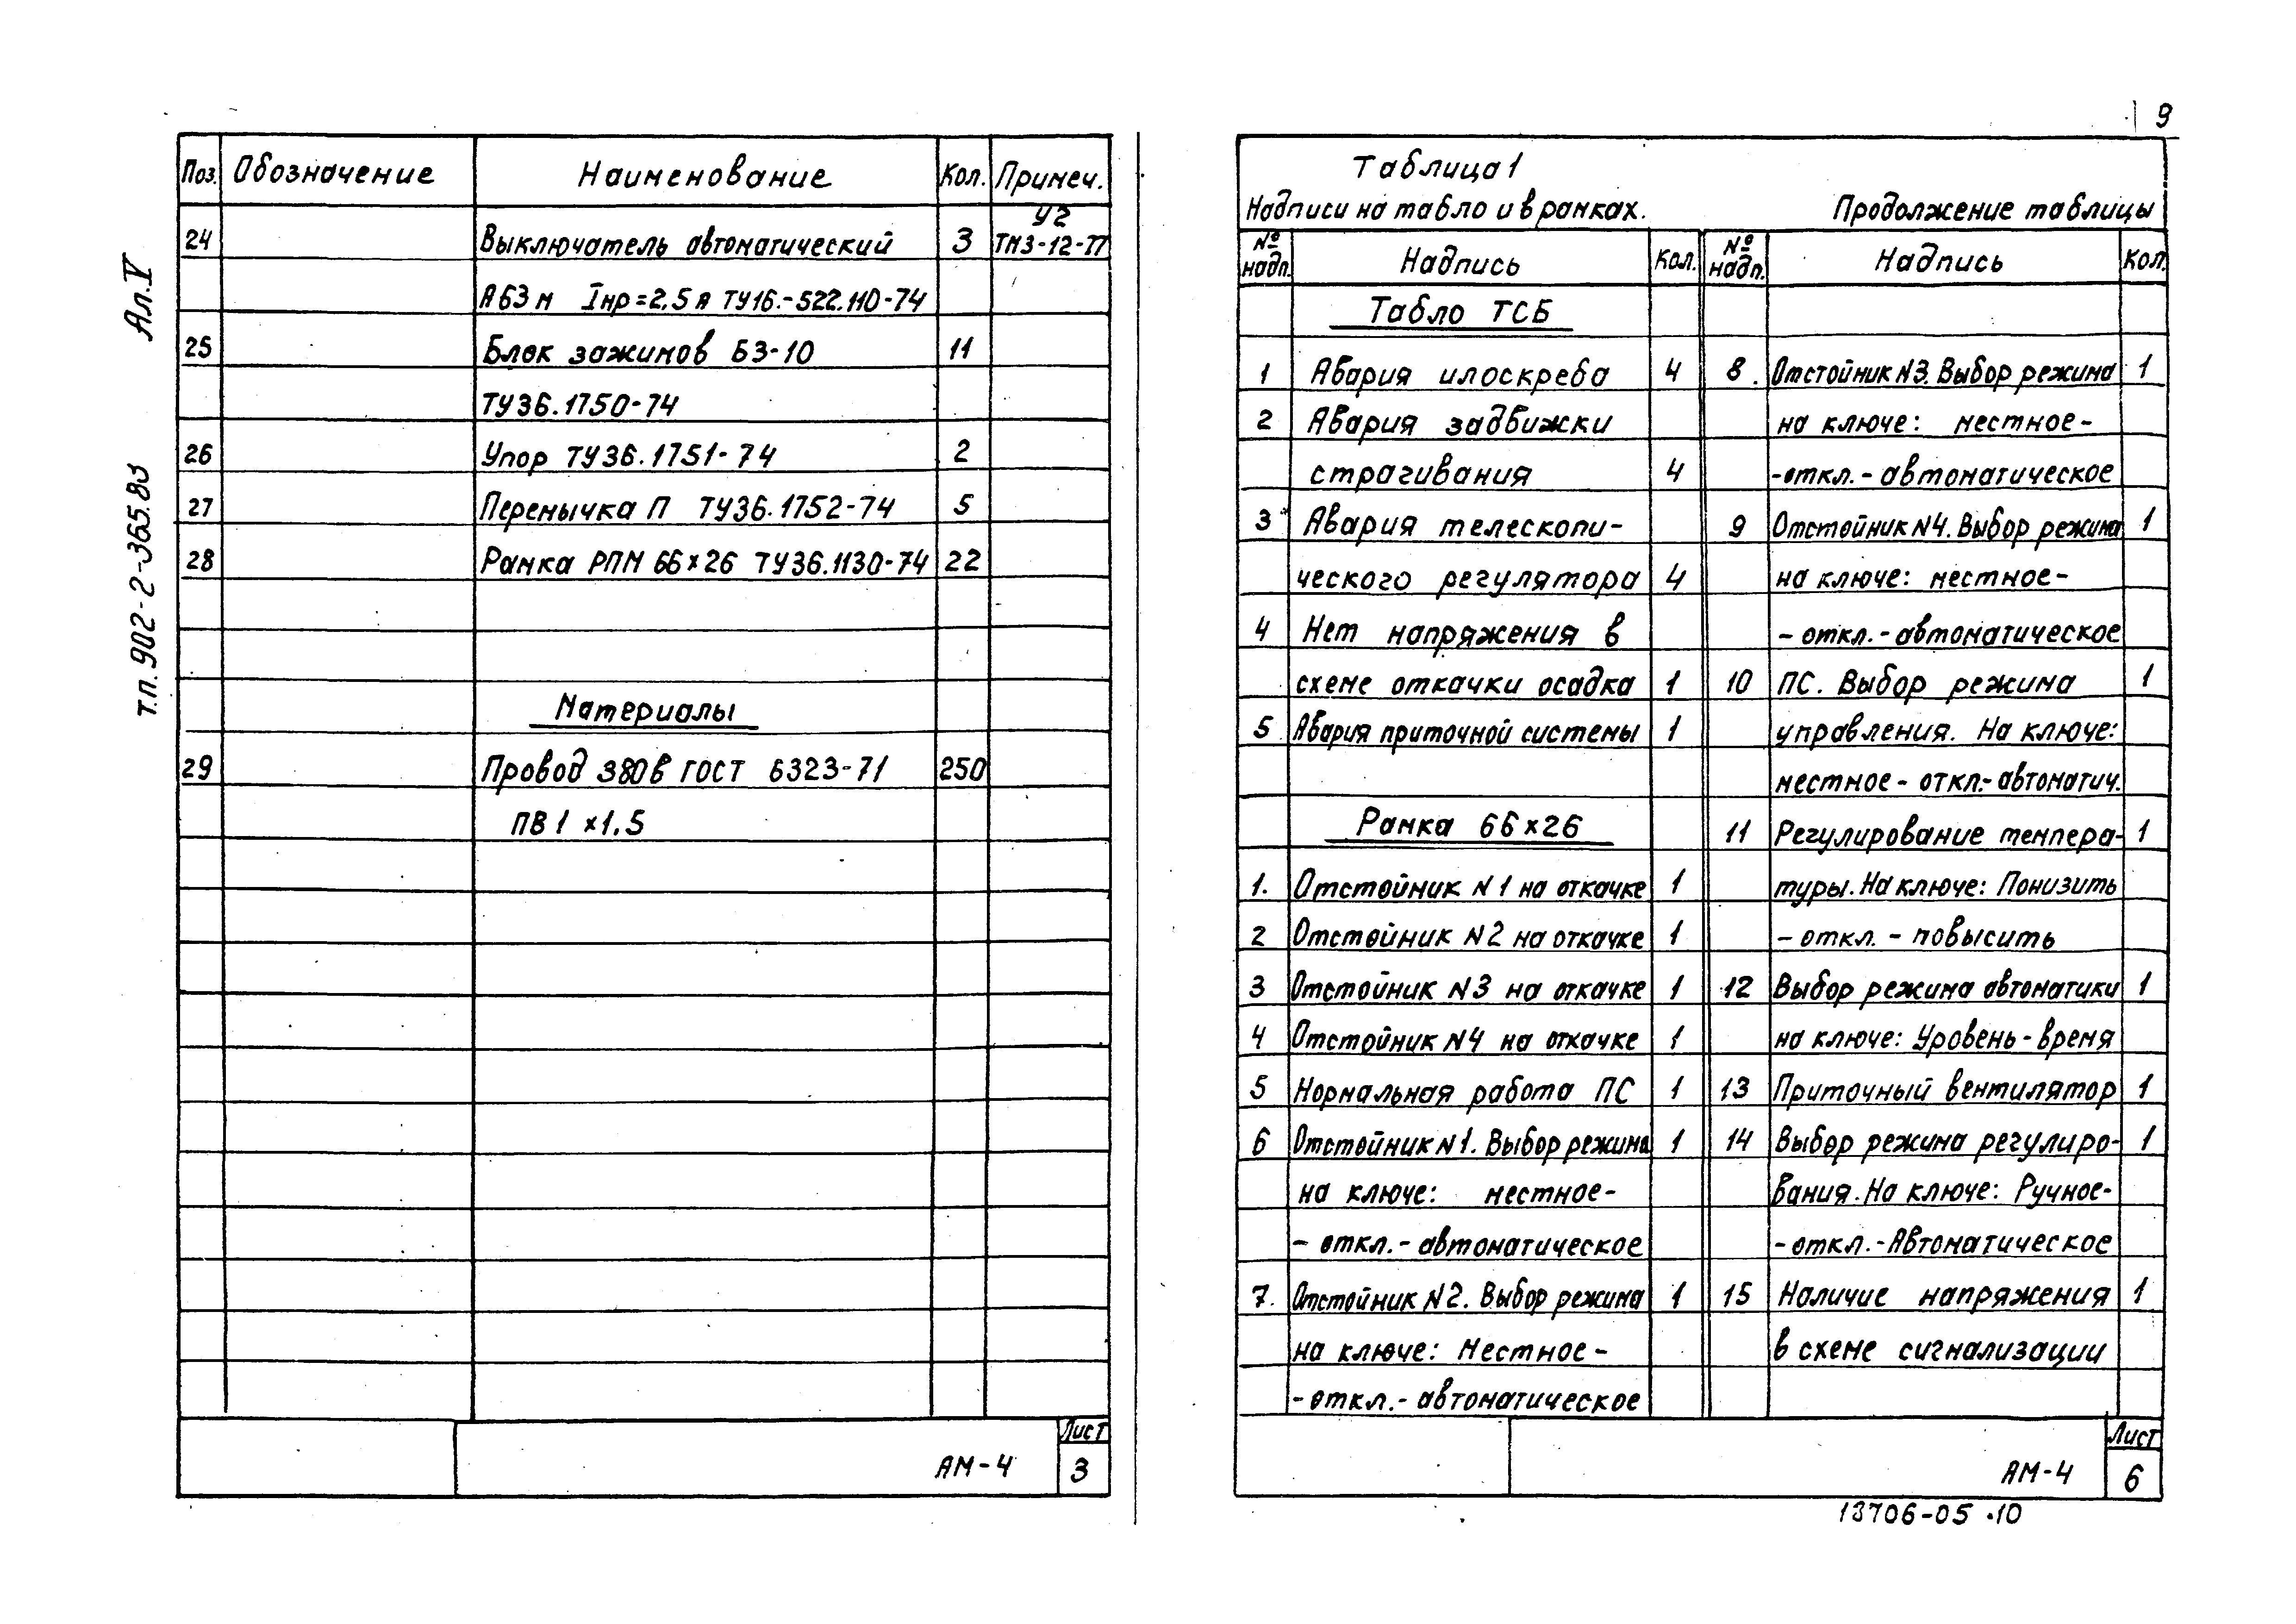 9
Ал. V
т.п. 902-2-365.83
Поз. Обозначение Наименование Кол. Примеч.
24 Выключатель автоматический 3 У2 ТМ3-12-77
А63м Iнр=2,5 А ТУ16.-522.110-74
25 Блок зажимов БЗ-10 11
ТУ36.1750-74
26 Упор ТУ36.1751-74 2
27 Перемычка П ТУ36.1752-74 5
28 Рамка РПМ 66×26 ТУ36.1130-74 22
Материалы
29 Провод 380В ГОСТ 6323-71 250
ПВ 1 ×1.5
АМ-4
Лист
3
Таблица 1
Надписи на табло и в рамках.
№ надп. Надпись Кол.
Табло ТСБ
1 Авария илоскреба 4
2 Авария задвижки
страгивания 4
3 Авария телескопи-
ческого регулятора 4
4 Нет напряжения в
схеме откачки осадка 1
5 Авария приточной системы 1
Рамка 66×26
1. Отстойник N1 на откачке 1
2 Отстойник N2 на откачке 1
3 Отстойник N3 на откачке 1
4 Отстойник N4 на откачке 1
5 Нормальная работа ПС 1
6 Отстойник N1. Выбор режима 1
на ключе: местное-
- откл.- автоматическое
7. Отстойник N2. Выбор режима 1
на ключе: Местное -
- откл.- автоматическое
Продолжение таблицы
№ надп. Надпись Кол.
8. Отстойник N3. Выбор режима 1
на ключе: местное-
-откл.- автоматическое
9 Отстойник N4. Выбор режима 1
на ключе: местное-
- откл.- автоматическое
10 ПС. Выбор режима 1
управления. На ключе:
местное - откл.- автоматич.
11 Регулирование темпера- 1
туры. На ключе: Понизить
- откл. - повысить
12 Выбор режима автоматики 1
на ключе: Уровень - время
13 Приточный вентилятор 1
14 Выбор режима регулиро- 1
вания. На ключе: Ручное-
- откл.- Автоматическое
15 Наличие напряжения 1
в схеме сигнализации
АМ-4
Лист
6
13706-05 .10